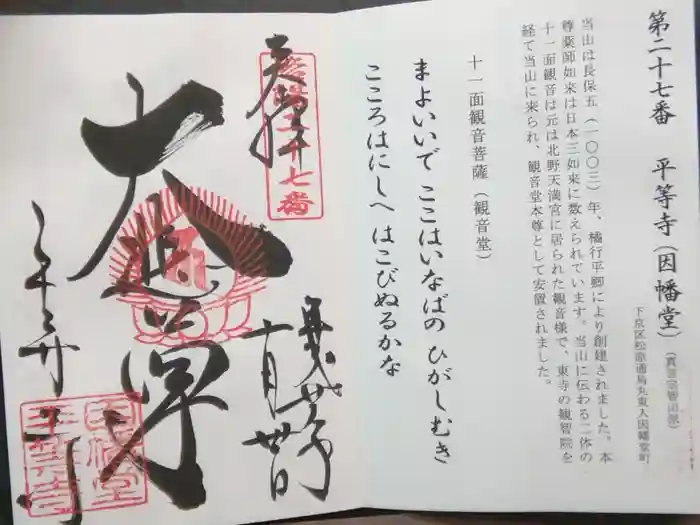 第二十七番 平等寺(因幡堂)
(真言宗智山派)
下京区松原通烏丸東入因幡堂町
当山は長保五(一〇〇三)年、橘行平卿により創建されました。本
尊薬師如来は日本三如来に数えられています。当山に伝わる二体の
十一面観音は元は北野天満宮に居られた観音様で、東寺の観智院を
経て当山に来られ、観音堂本尊として安置されました。
十一面観音菩薩(観音堂)
まよいいで ここはいなばの ひがしむき
こころはにしへ はこびぬるかな
奉拝
洛陽二十七番
大悲閣
平等寺
因幡堂
平等寺